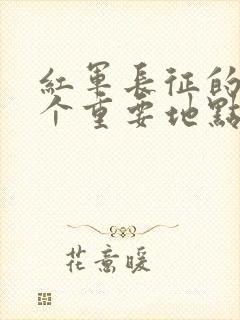 紅軍長征的
个重要地點
花意暖